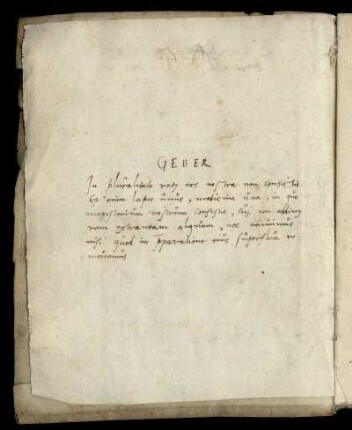 GEBER
In pluralitate rerum ars nostra non consistit
Est enim lapis unus, medicina una, in quo
magisterium nostrum consistit, cui non addimus
rem extraneam aliquam, nec minuimus
nisi quod in pparatione eius superflua re
movemus